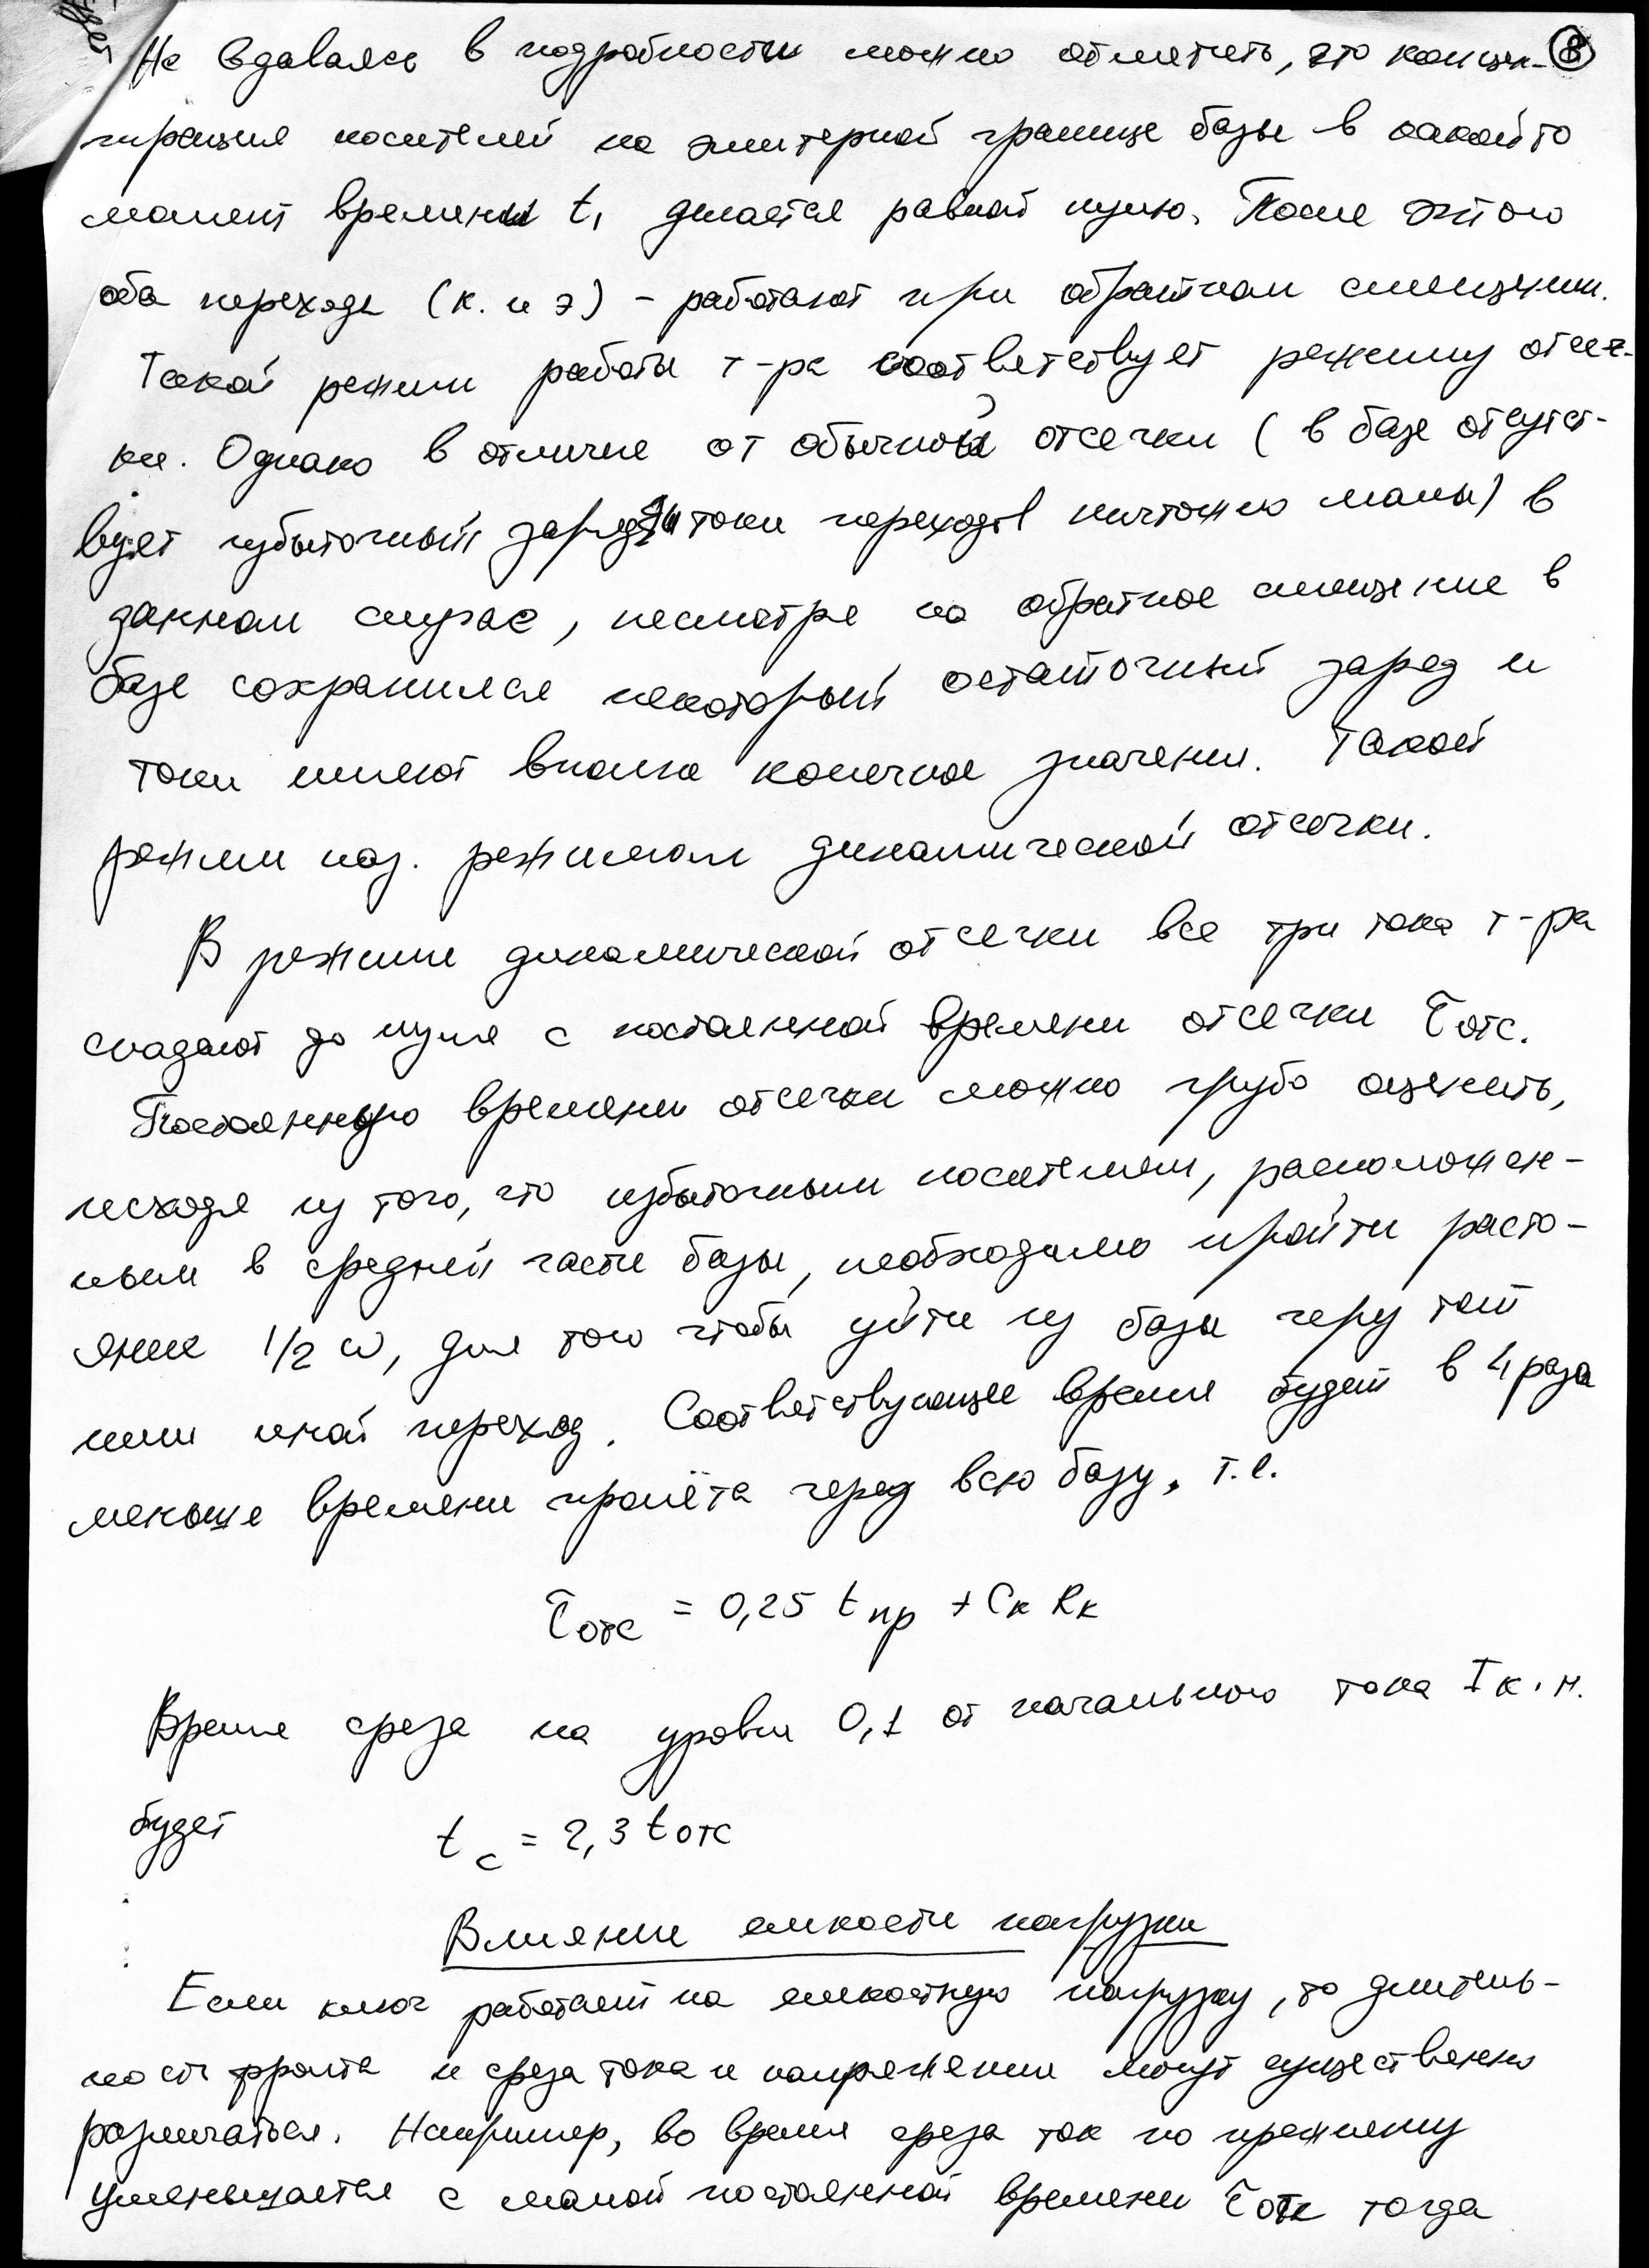 Не вдаваясь в подробности можно отметить, что концен- 8
трация носителей на эмитерной границе базы в какой то
момент времени t₁ делается равной нулю. После этого
оба перехода (к. и э) - работают при обратном смещении.
Такой режим работы т-ра соответствует режиму отсеч-
ки. Однако в отличие от обычной отсечки ( в базе отсутст-
вует избыточный заряд и токи переходов ничтожно малы) в
данном случае, несмотря на обратное смещение в
базе сохранился некоторый остаточный заряд и
токи имеют вполне конечное значения. Такой
режим наз. режимом динамической отсечки.
В режиме динамической отсечки все три тока т-ра
спадают до нуля с постоянной времени отсечки τотс.
Постоянную времени отсечки можно грубо оценить,
исходя из того, что избыточным носителям, расположен-
ным в средней части базы, необходимо пройти расто-
яние 1/2 ω, для того чтобы уйти из базы через тот
или иной переход. Соответствующее время будет в 4 раза
меньше времени пролёта через всю базу, т.е.
τотс = 0,25 tпр + Cк Rк
Время среза на уровне 0,1 от начального тока Iк.н.
будет tс = 2,3 tотс
Влияние емкости нагрузки
Если ключ работает на емкостную нагрузку, то длитель-
ность фронта и среза тока и напряжения могут существенно
различаться. Например, во время среза ток по прежнему
уменьшается с малой постоянной времени τотс тогда